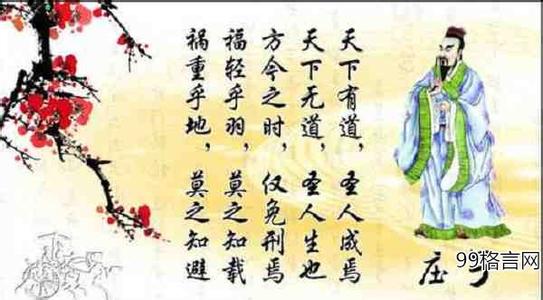 天下有道，圣人成焉
天下无道，圣人生也
方今之时，仅免刑焉
福轻乎羽，莫之知载
祸重乎地，莫之知避
庄子
99格言网